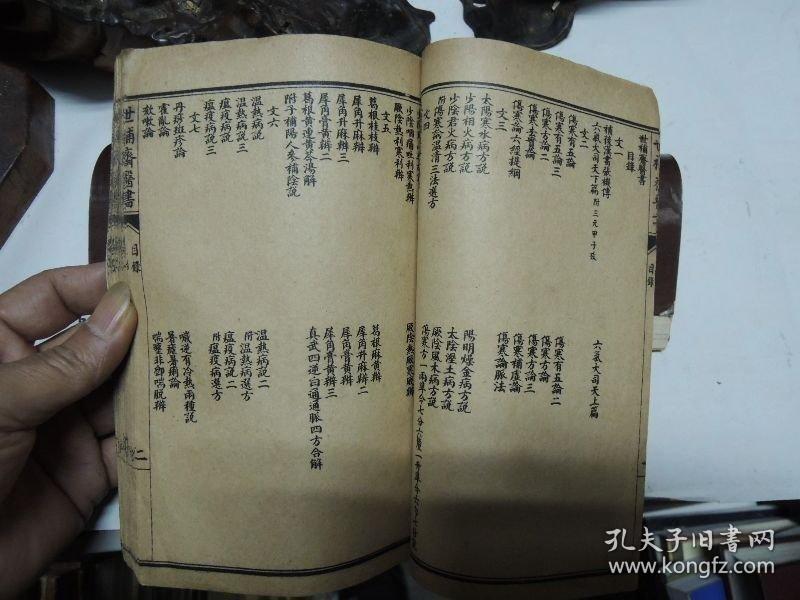 世補齋醫書
目錄
文一
補後漢書張機傳
六氣大司天上篇
六氣大司天下篇 附三元甲子攷
文二
傷寒有五論
傷寒有五論二
傷寒有五論三
傷寒方論
傷寒方論二
傷寒方論三
傷寒去實論
傷寒補虛論
傷寒論六經提綱
傷寒論脈法
文三
太陽寒水病方說
陽明燥金病方說
少陽相火病方說
太陰溼土病方說
少陰君火病方說
厥陰風木病方說
附傷寒論溫清三法選方
文四
少陰咽痛吐利寒熱辨
厥陰熱利寒利辨
文五
葛根桂枝辨
葛根麻黃辨
犀角升麻辨
犀角升麻辨二
犀角膏黃辨
犀角膏黃辨二
犀角膏黃辨三
葛根黃連黃芩湯解
真武四逆白通通脈四方合解
附子補陽人參補陰說
文六
溫熱病說
溫熱病說二
溫熱病說三
附溫熱病選方
瘟疫病說
瘟疫病說二
瘟疫病說三
附瘟疫病選方
文七
丹痧斑疹論
噦逆有冷熱兩種說
霍亂論
暑瘧暑痢論
欬嗽論
喘壅非卽喘脫辨
世補齋醫書
目錄
二
孔夫子旧书网
www.kongfz.com